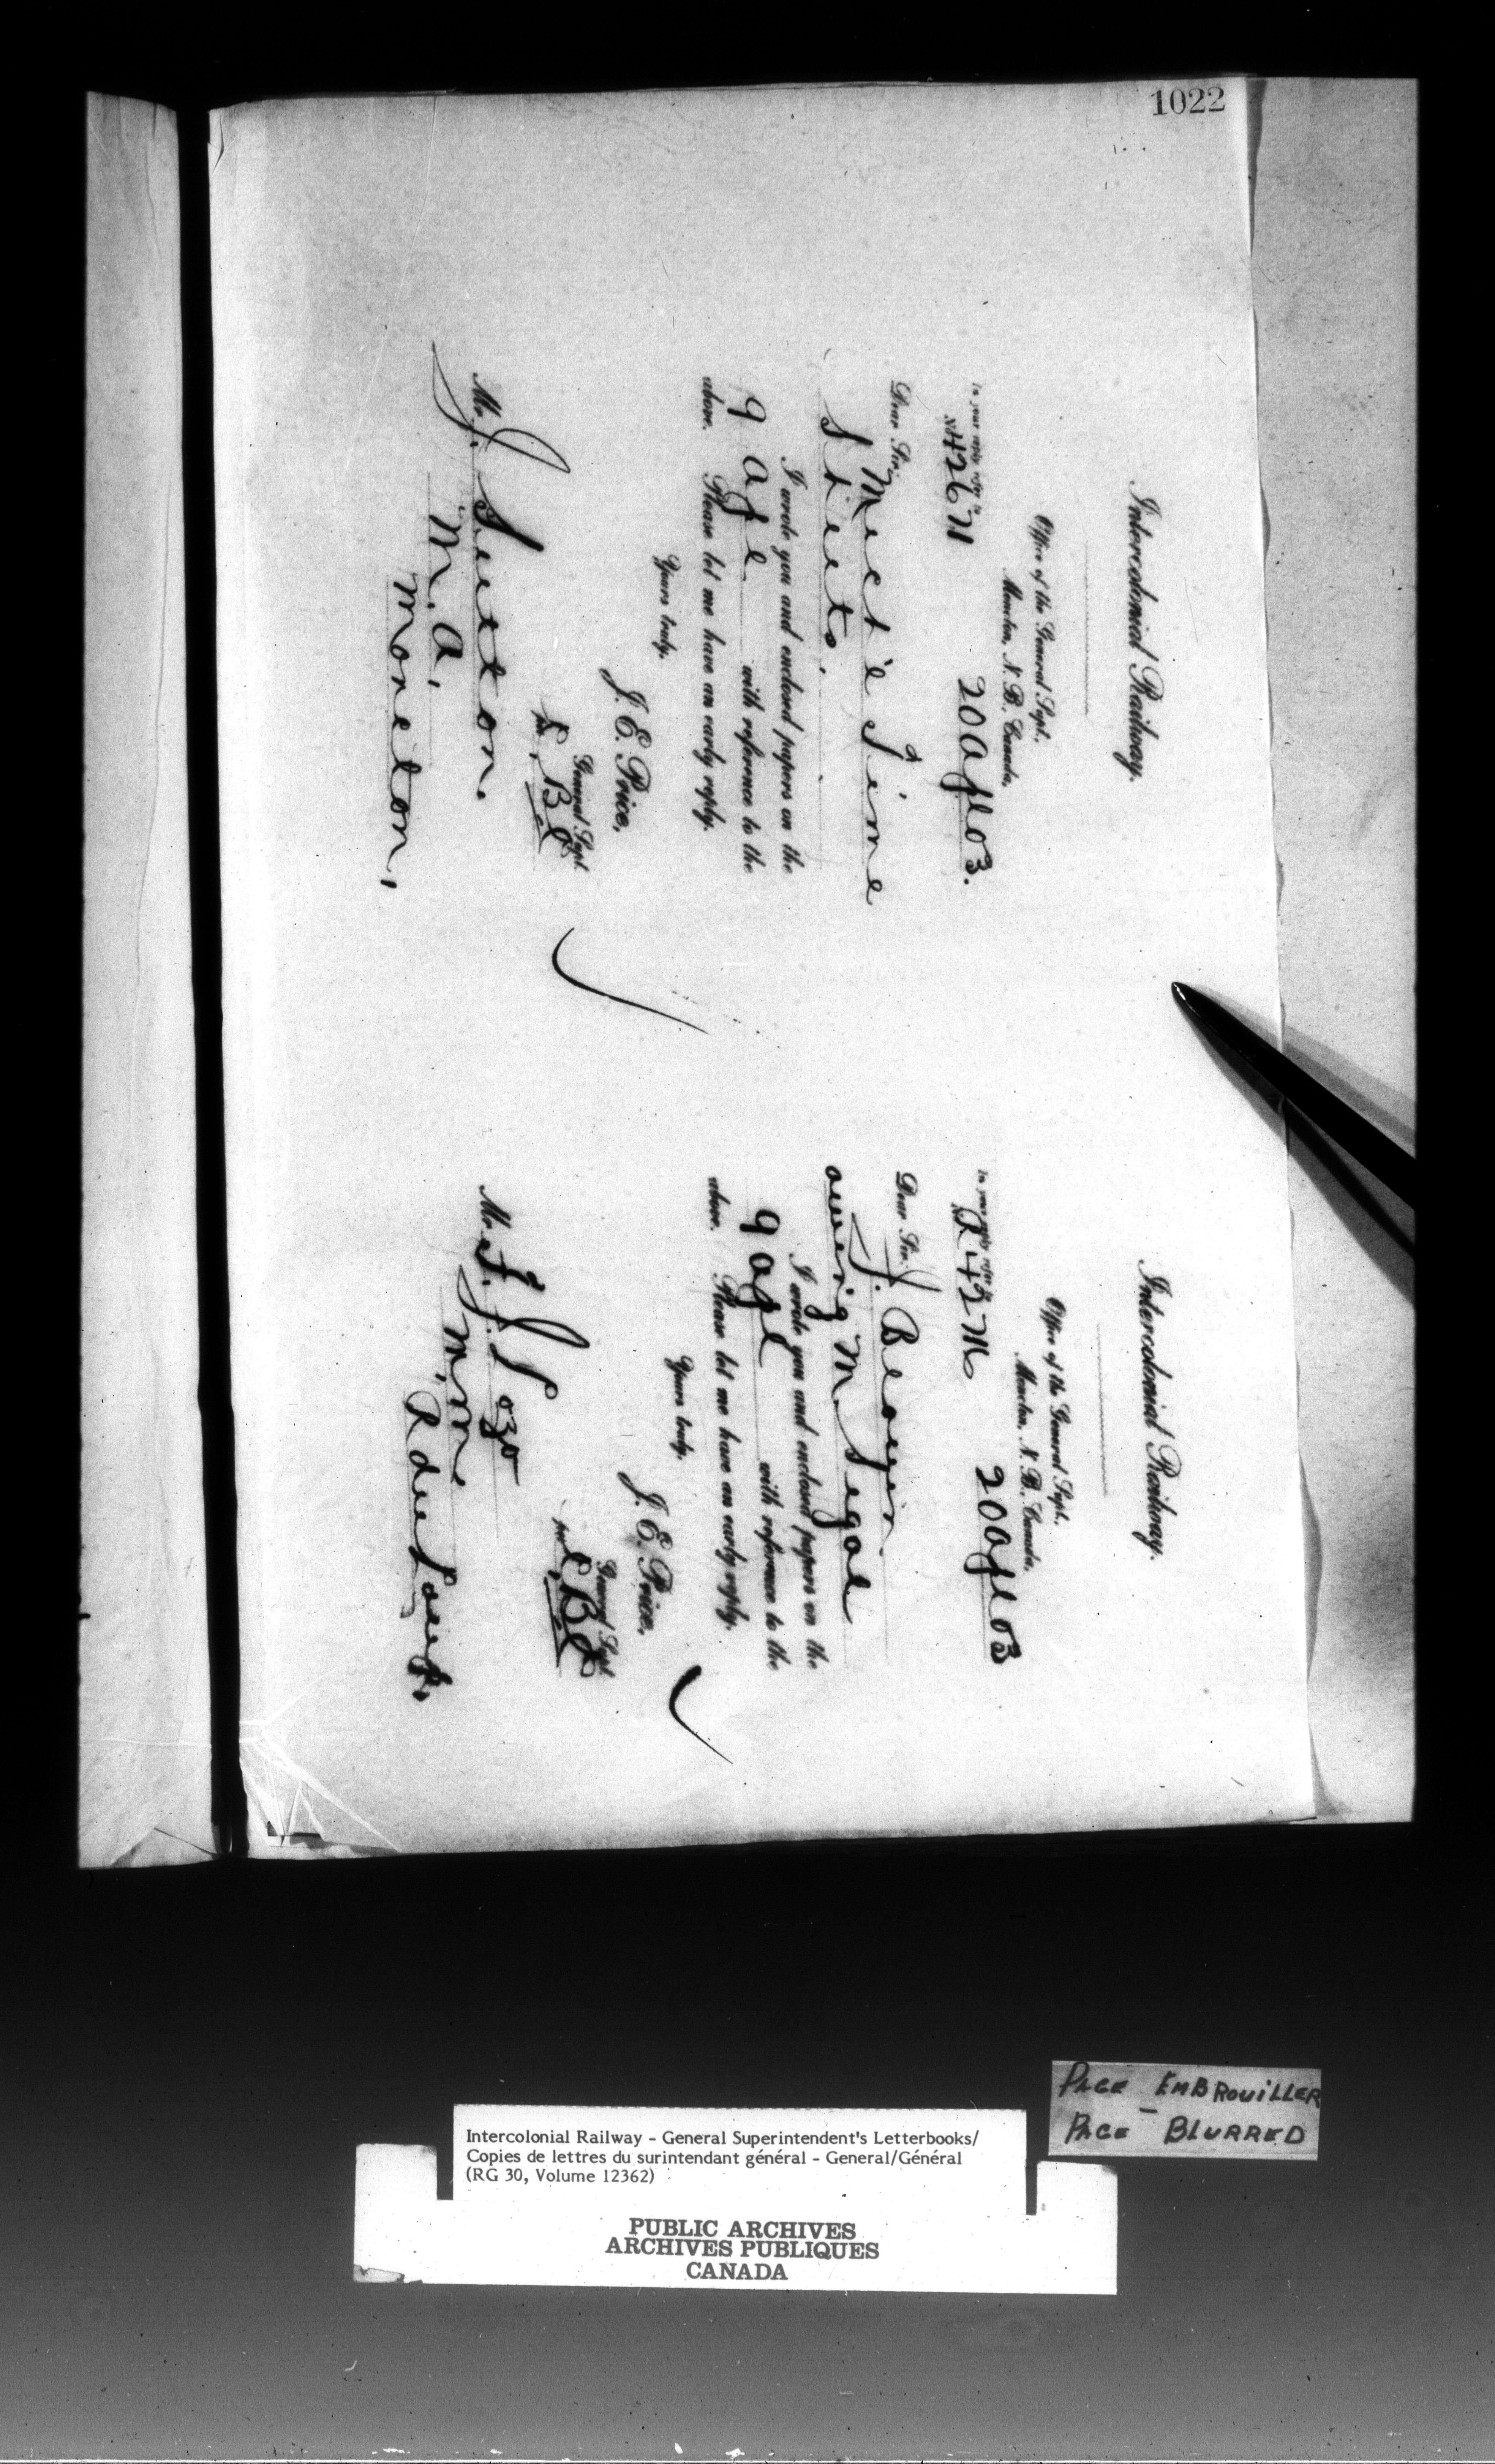 1022
Intercolonial Railway.
Office of the General Supt.,
Moncton, N. B., Canada,
20 Apl 03.
In your reply refer to
No. 42671
Dear Sir:
Mect'l Time
Sheets.
I wrote you and enclosed papers on the
9 Apl with reference to the
above. Please let me have an early reply.
Yours truly,
J. E. Price,
General Supt.
Mr. J. Sutton,
M. A.
Moncton,
Intercolonial Railway.
Office of the General Supt.,
Moncton, N. B., Canada,
20 Apl 03
In your reply refer to
Dear Sir:
J.
owing M. Segal
I wrote you and enclosed papers on the
9 Apl with reference to the
above. Please let me have an early reply.
Yours truly,
J. E. Price,
General Supt.
Mr.
R du Loup.
PAGE EMBROUILLER
PAGE - BLURRED
Intercolonial Railway - General Superintendent's Letterbooks/
Copies de lettres du surintendant général - General/Général
(RG 30, Volume 12362)
PUBLIC ARCHIVES
ARCHIVES PUBLIQUES
CANADA